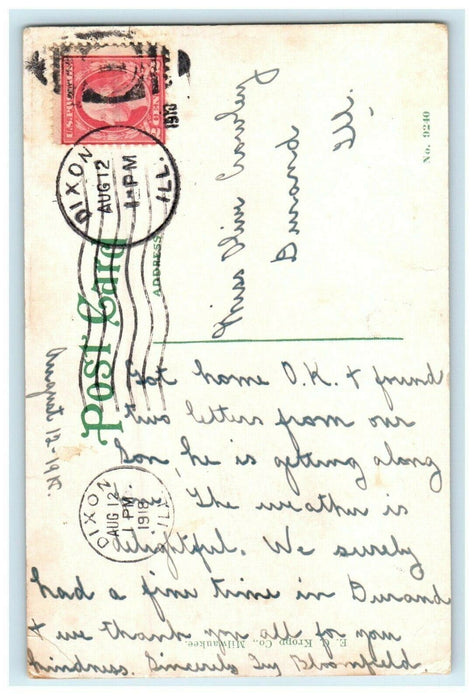 U.S. POSTAGE
1918
DIXON
AUG 12
1-PM
ILL.
POST CARD
ADDRESS
Miss Crowley
Durand
Ill.
No. 9240
August 12-1918.
Got home O.K. & found
two letters from our
son, he is getting along
The weather is
delightful. We surely
had a fine time in Durand
& we thank you all for you
kindness. Sincerely
DIXON
AUG 12
1 PM
1918
ILL.
E. C. Kropp Co., Milwaukee.